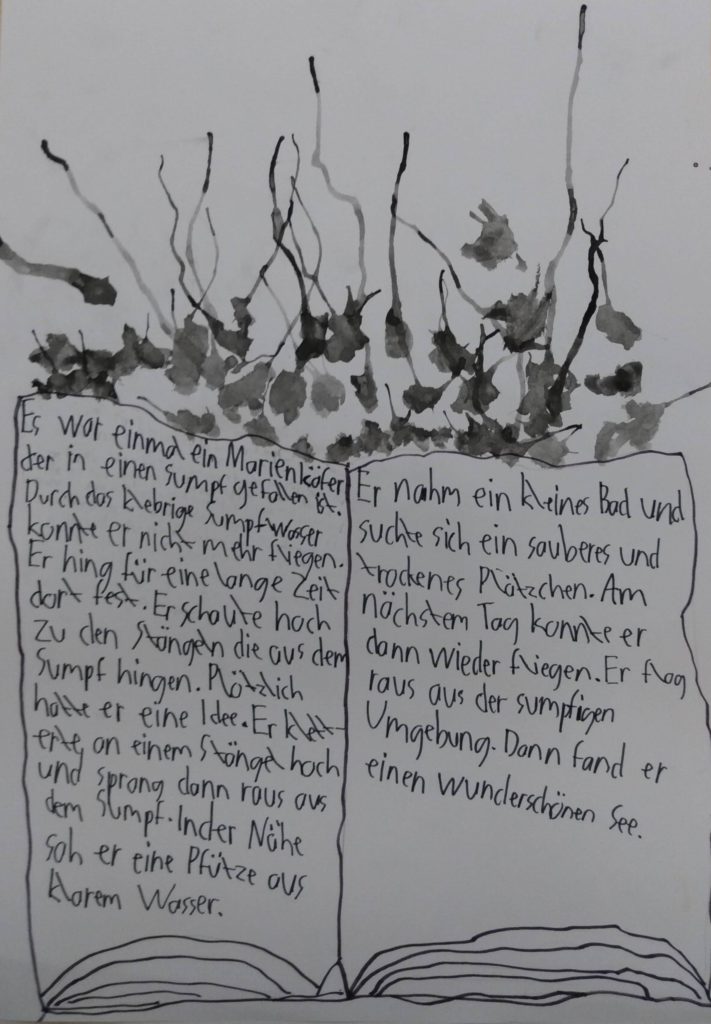 Es war einmal ein Marienkäfer
der in einen Sumpf gefallen ist.
Durch das klebrige Sumpfwasser
konnte er nicht mehr fliegen.
Er hing für eine lange Zeit
dort fest. Er schaute hoch
zu den Stängeln die aus dem
Sumpf hingen. Plötzlich
hatte er eine Idee. Er klett-
erte an einem Stängel hoch
und sprang dann raus aus
dem Sumpf. In der Nähe
sah er eine Pfütze aus
klarem Wasser.
Er nahm ein kleines Bad und
suchte sich ein sauberes und
trockenes Plätzchen. Am
nächsten Tag konnte er
dann wieder fliegen. Er flog
raus aus der sumpfigen
Umgebung. Dann fand er
einen wunderschönen See.